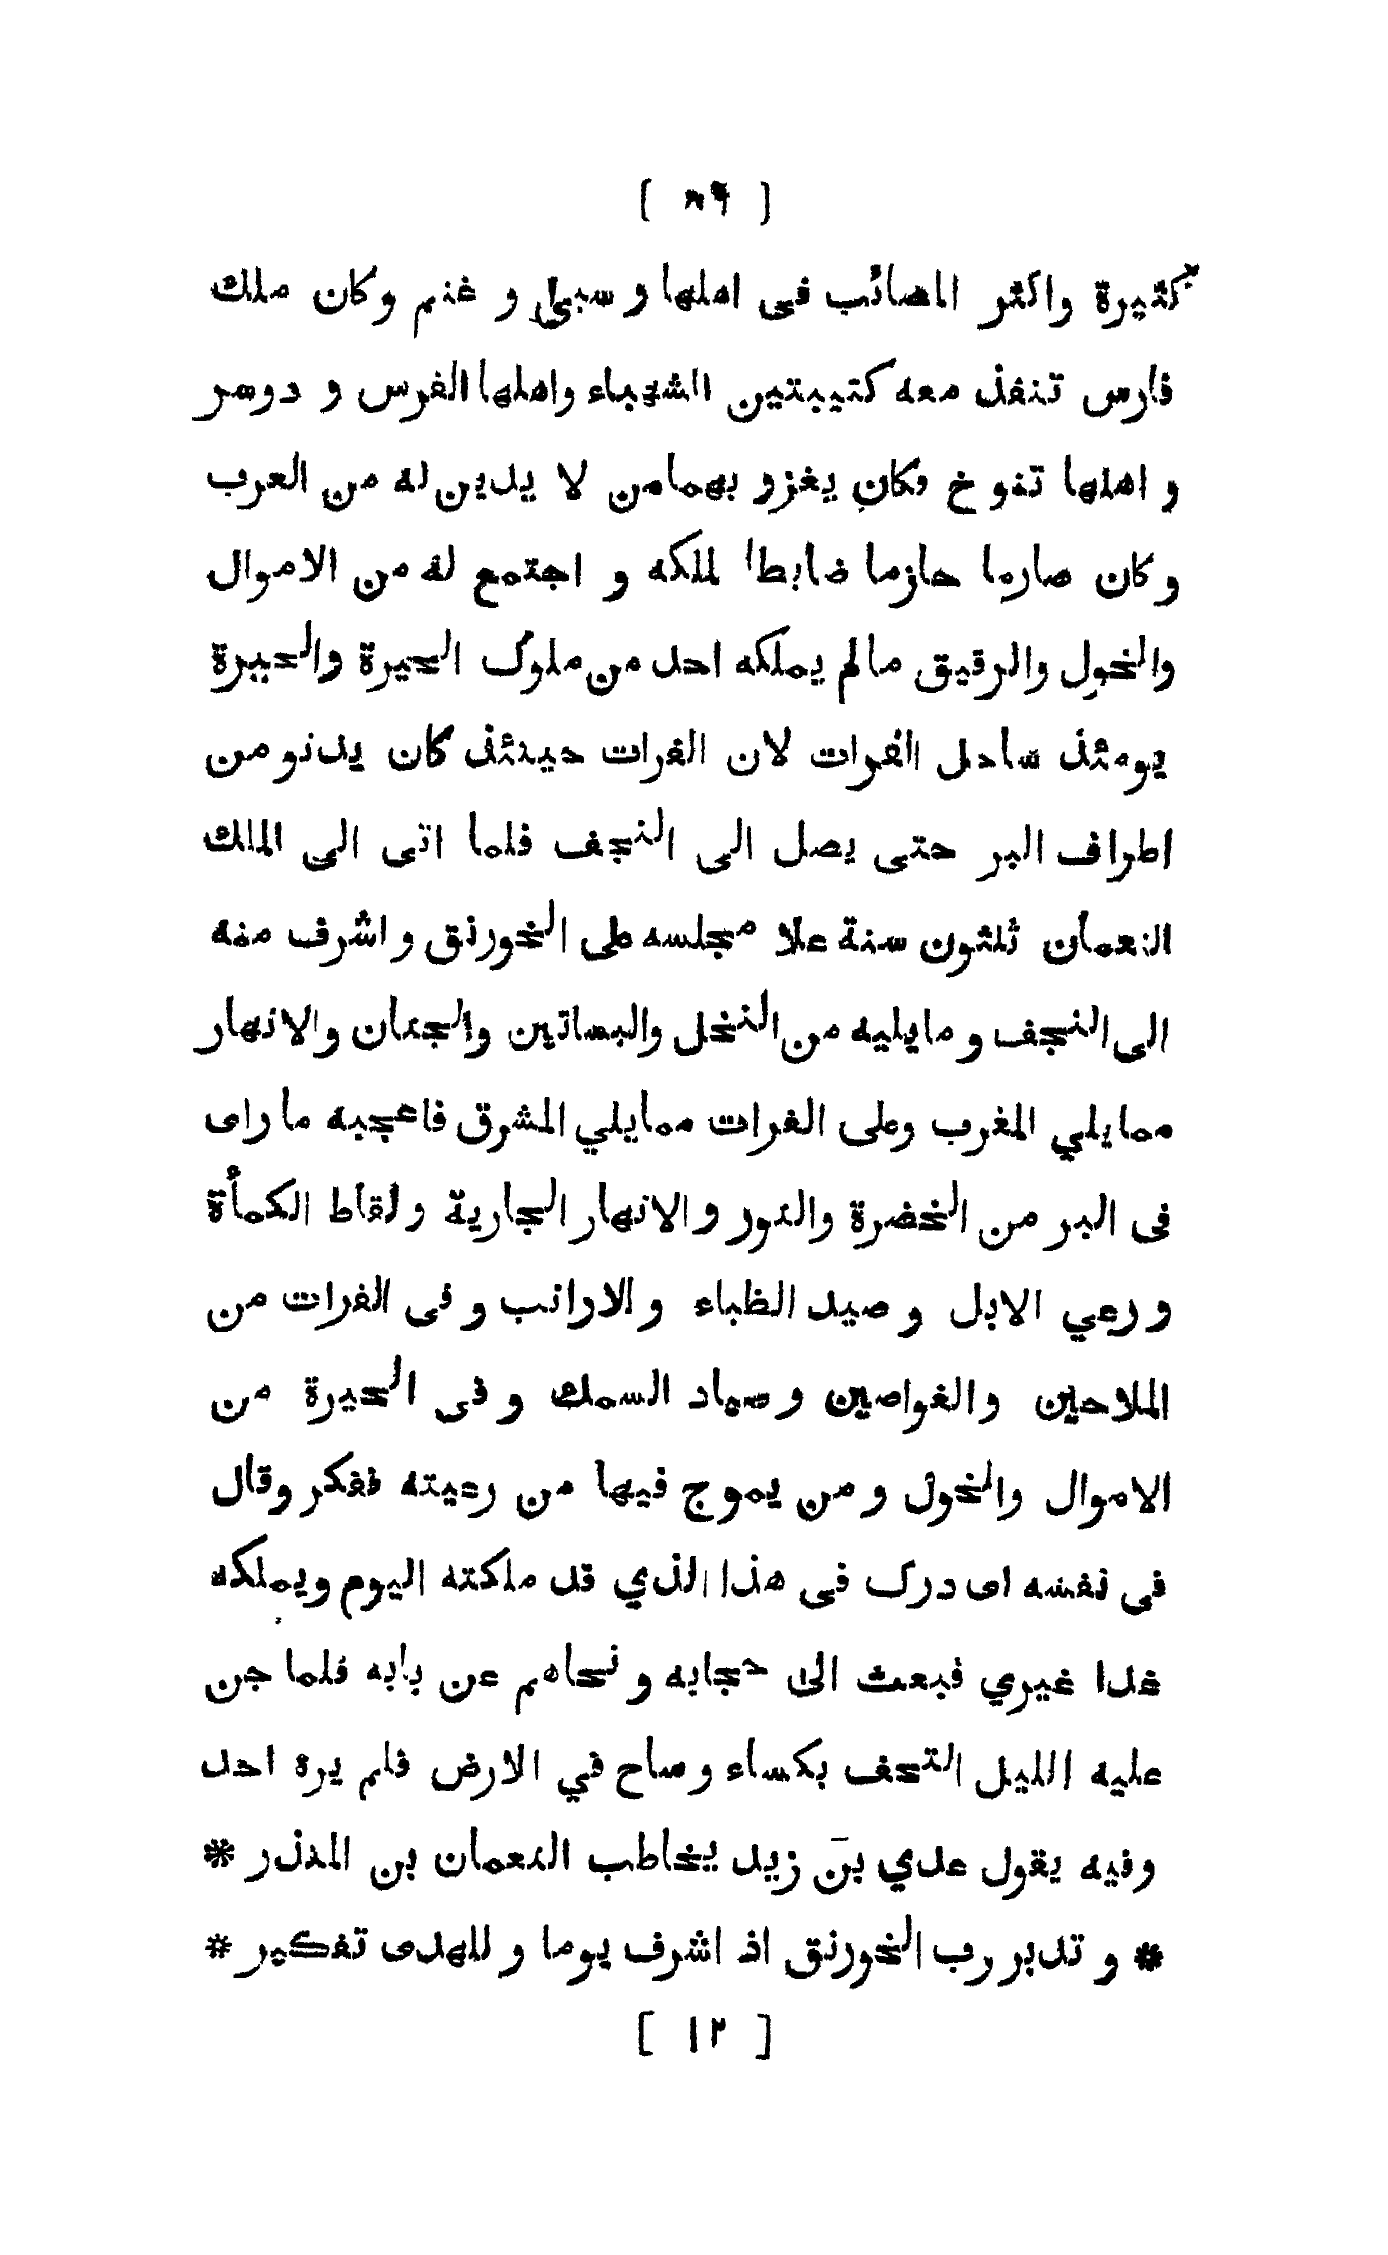 [ ٨٩ ]
كثيرة واكثر المصائب فى اهلها و سبى و غنم وكان ملك
فارس تنفذ معه كتيبتين الشهباء واهلها الفرس و دوسر
و اهلها تنوخ فكان يغزو بهمامن لا يدين له من العرب
وكان صارما حازما ضابطا لملكه و اجتمع له من الاموال
والخول والرقيق مالم يملكه احد من ملوك الحيرة والحيرة
يومئذ ساحل الفرات لان الفرات حينئذ كان يدنو من
اطراف البر حتى يصل الى النجف فلما اتى الى الملك
النعمان ثلثون سنة علا مجلسه على الخورنق و اشرف منه
الى النجف و مايليه من النخل والبساتين والجنان والانهار
ممايلي المغرب وعلى الفرات ممايلي المشرق فاعجبه ماراى
فى البر من الخضرة والنور والانهار الجارية ولقاط الكمأة
و رعي الابل و صيد الظباء و الارانب و فى الفرات من
الملاحين والغواصين و صياد السمك و فى الحيرة من
الاموال والخول و من يموج فيها من رعيته ففكر وقال
فى نفسه اى درك فى هذا الذي قد ملكته اليوم ويملكه
غدا غيري فبعث الى حجابه و نحاهم عن بابه فلما جن
عليه الليل التحف بكساء وساح في الارض فلم يره احد
وفيه يقول عدي بن زيد يخاطب النعمان بن المنذر *
* و تدبر رب الخورنق اذ اشرف يوما و للهدى تفكير *
[ ١٢ ]